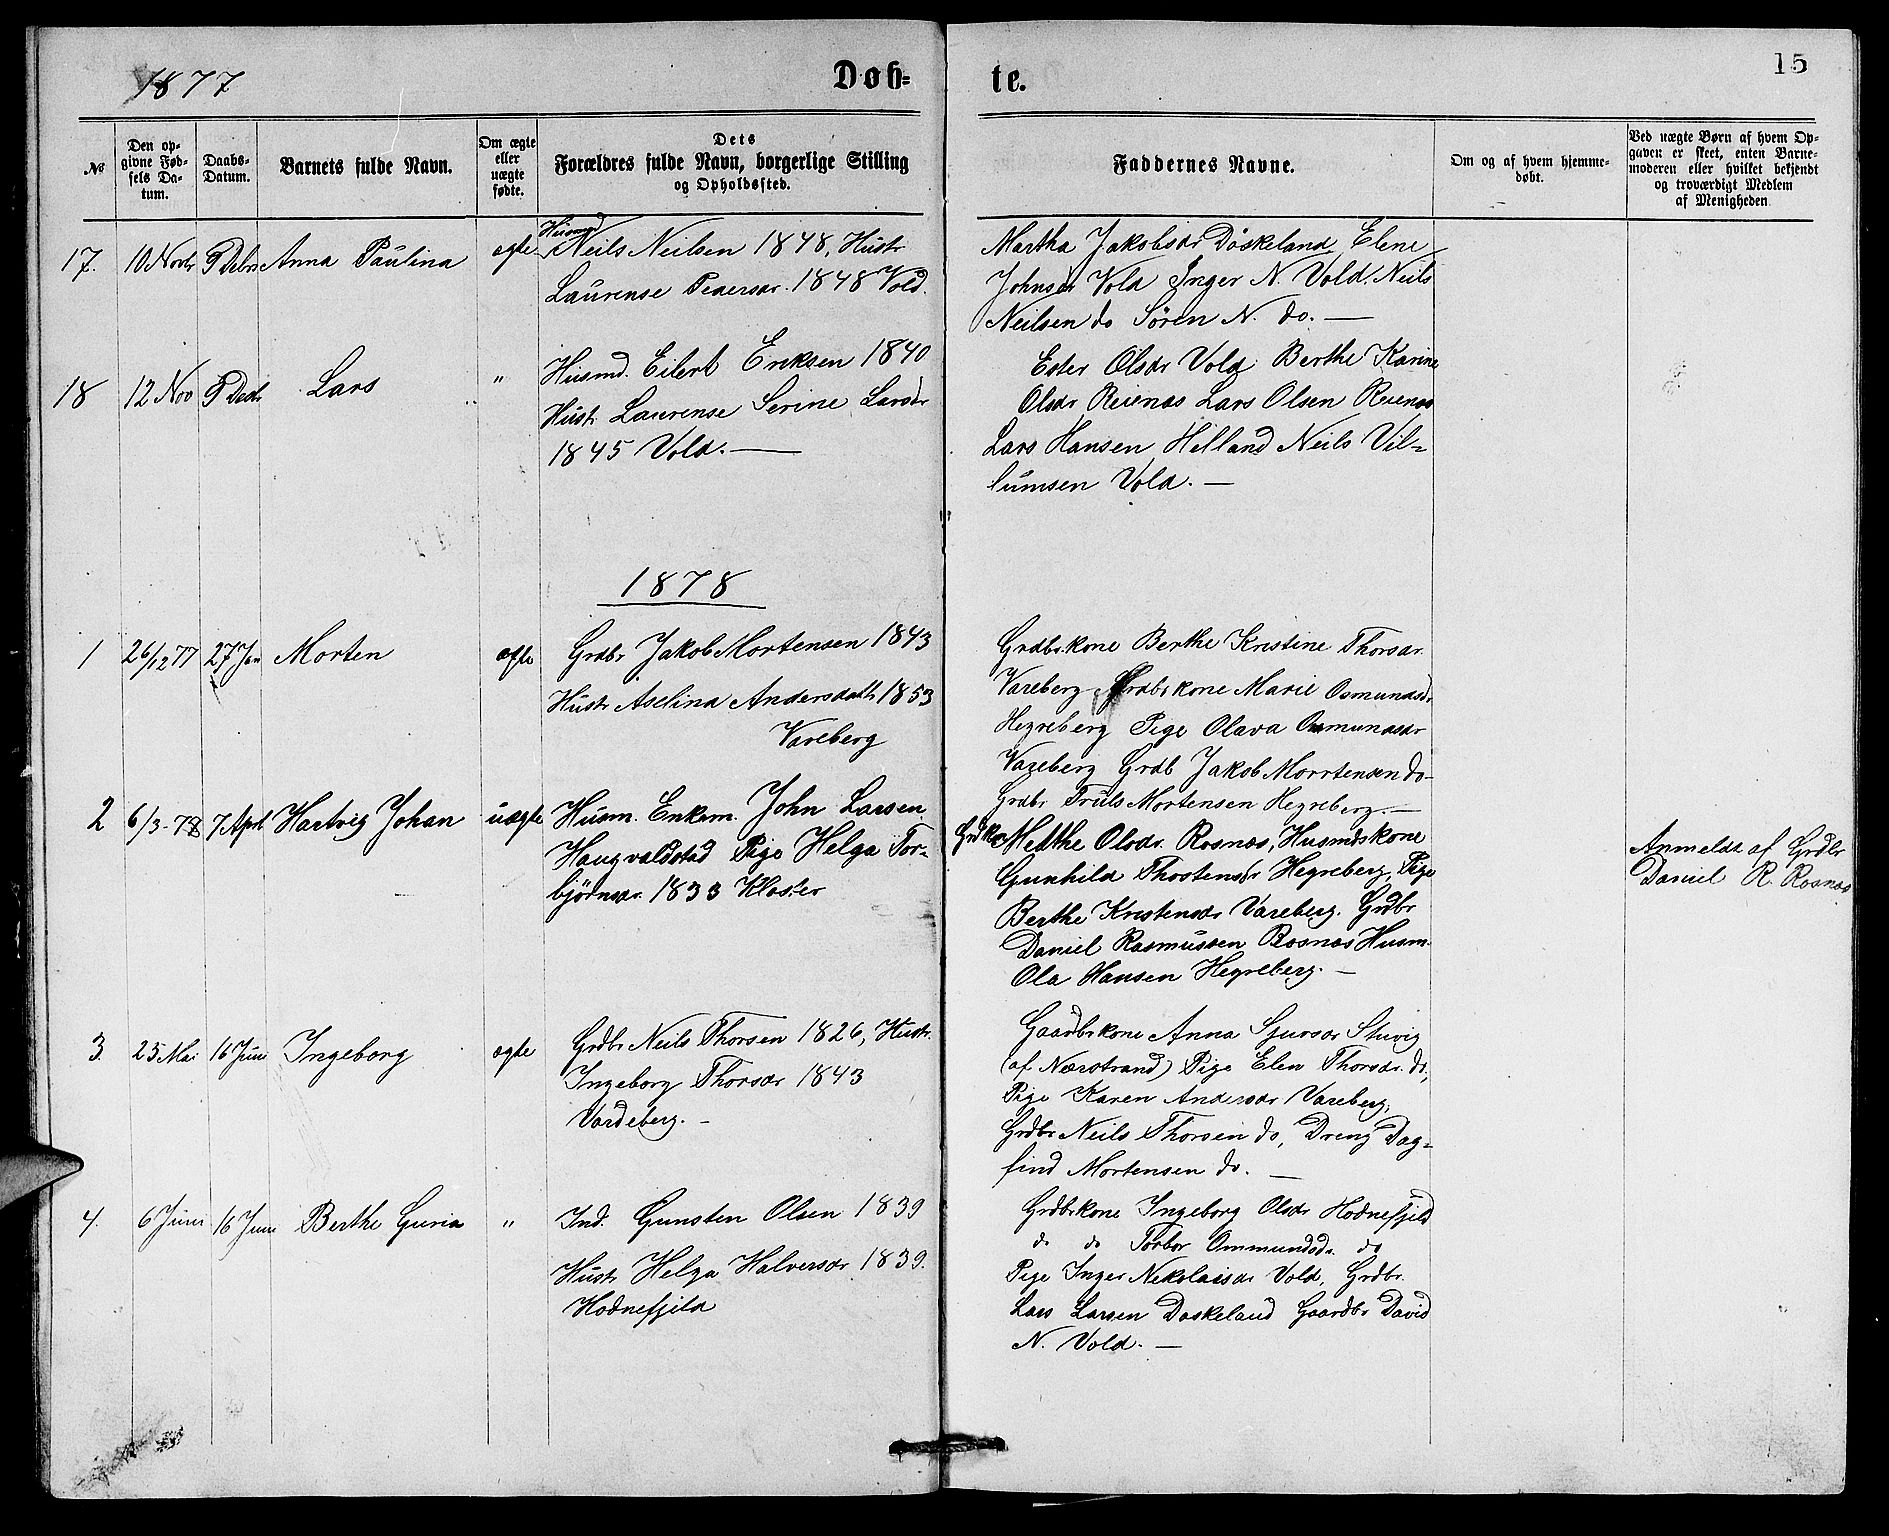 1877
Døb-
te.
15
No
Den op-
givne Fød-
sels Da-
tum.
Daabs-
Datum.
Barnets fulde Navn.
Om ægte
eller
uægte
fødte.
Dets
Forældres fulde Navn, borgerlige Stilling
og Opholdssted.
Faddernes Navne.
Om og af hvem hjemme-
døbt.
Ved uægte Børn af hvem Op-
gaven er skeet, enten Barne-
moderen eller hvilket bekjendt
og troværdigt Medlem
af Menigheden
17. 10 Novbr 9 Debr Anna Paulina egte
Husmd
Neils Neilsen 1848, Hustr
Laurense Pedersdr. 1848 Vold.
Martha Jakobsdr Døskeland, Elene
Johnsdr Vold Inger N. Vold. Neils
Neilsen do Søren N. do. —
18 12 Nov 9 Decbr Lars "
Husmd. Eilert Eriksen 1840
Hustr Laurense Serine Larsdr
1845 Vold. —
Ester Olsdr Vold Berthe Karine
Olsdr Reienæs Lars Olsen Reienæs
Lars Hansen Helland Neils Vil=
lumsen Vold. —
1878
1 26/12 77 27 Jan Morten egte
Grdbr Jakob Mortensen 1843
Hustr Aselina Andersdatt. 1853
Vareberg
Grdbrkone Berthe Kristine Thorsdr.
Vareberg, Grdbrkone Marie Osmundsdr
Hegreberg Pige Olava Osmundsdr
Vareberg Grdb Jakob Morrtensen do-
Grdbr Truls Mortensen Hegreberg. —
2 6/3-78 7 April Hartvig Johan uægte
Husm. Enkem. John Larsen
Haugvaldstad Pige Helga Tor-
bjørnsdr. 1833 Kloster
Grdkone Methe Olsdr. Rosnæs, Husmdskone
Gunhild Thostensdr Hegreberg, Pige
Berthe Kristensdr Vareberg. Grdbr
Daniel Rasmussen Rosnæs Husm.
Ola Hansen Hegreberg. —
Anmeldt af Grdbr
Daniel R. Rosnæs
3. 25 Mai 16 Juni Ingeborg egte
Grdbr Neils Thorsen 1826, Hustr.
Ingeborg Thorsdr 1843
Vardeberg. -
Gaardbrkone Anna Sjursdr Stuvig
(af Nærstrand) Pige Elen Thorsdr. do,
Pige Karen Andersdr Vareberg,
Grdbr Neils Thorsen do, Dreng Dag=
find Mortensen do. —
4. 6 Juni 16 Juni Berthe Guria "
Ind. Gunsten Olsen 1839
Hustr Helga Halversdr 1839.
Hodnefjeld
Grdbrkone Ingeborg Olsdr Hodnefjeld
do do Torbor Ommundsdr. do
Pige Inger Nekolaisdr Vold, Grdbr.
Lars Larsen Døskeland Gaardbr David
N. Vold. —